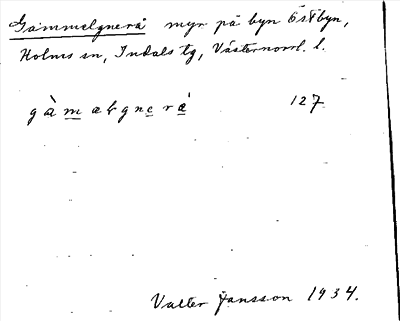 Gammelgnerå myr på byn Östbyn,
Holms sn, Indals tg, Västernorrl. l.
gàmælgnerá 127
Valter Jansson 1934.